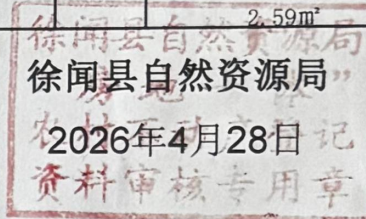 2.59㎡
徐闻县自然资源局
徐闻县自然资源局
2026年4月28日
资料审核专用章